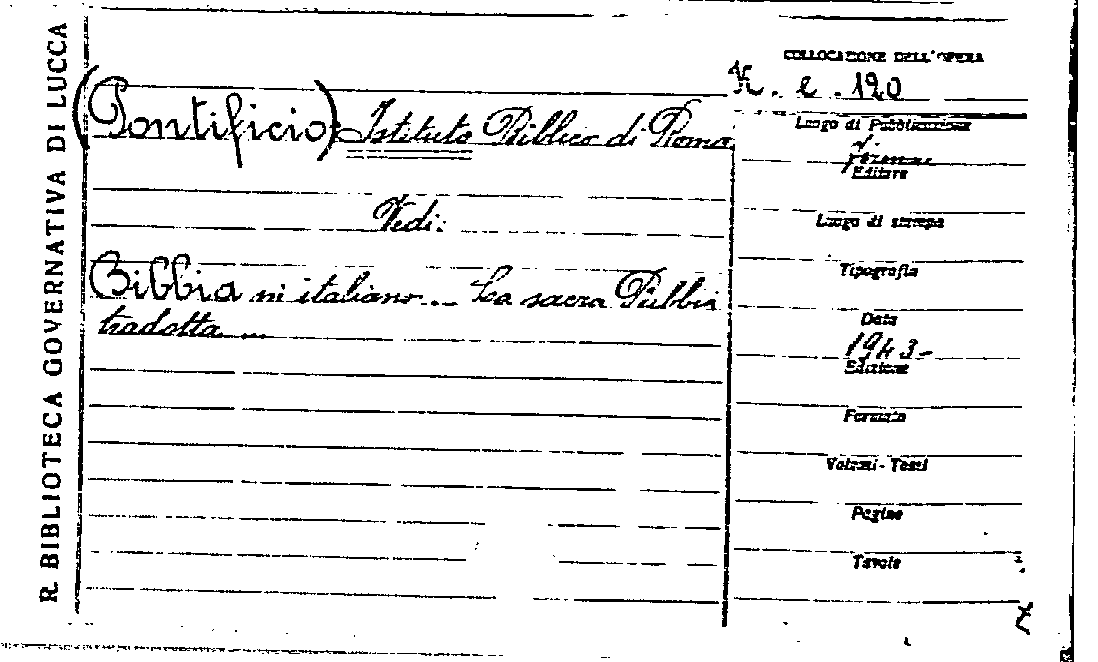 R. BIBLIOTECA GOVERNATIVA DI LUCCA
(Pontificio) Istituto Biblico di Roma.
Vedi:
Bibbia in italiano... La sacra Bibbia
tradotta ...
COLLOCAZIONE DELL'OPERA
K. e. 120
Luogo di Pubblicazione
Firenze
Editore
Luogo di stampa
Tipografia
Data
1943-
Edizione
Formato
Volumi-Tomi
Pagine
Tavole